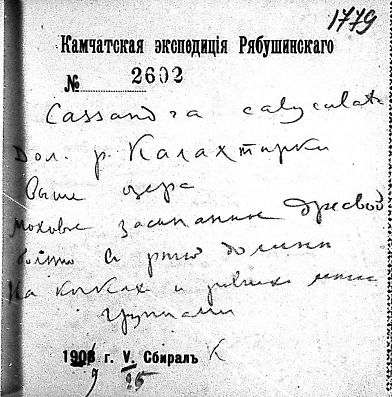 1779
Камчатская экспедиція Рябушинскаго
№ 2602
Cassandra calyculata
Дол. р. Калахтырки
Выше озера
моховые засыпанные дресвой
долины
На кочках и
группами
1908 г. V. Сбиралъ К
9 25